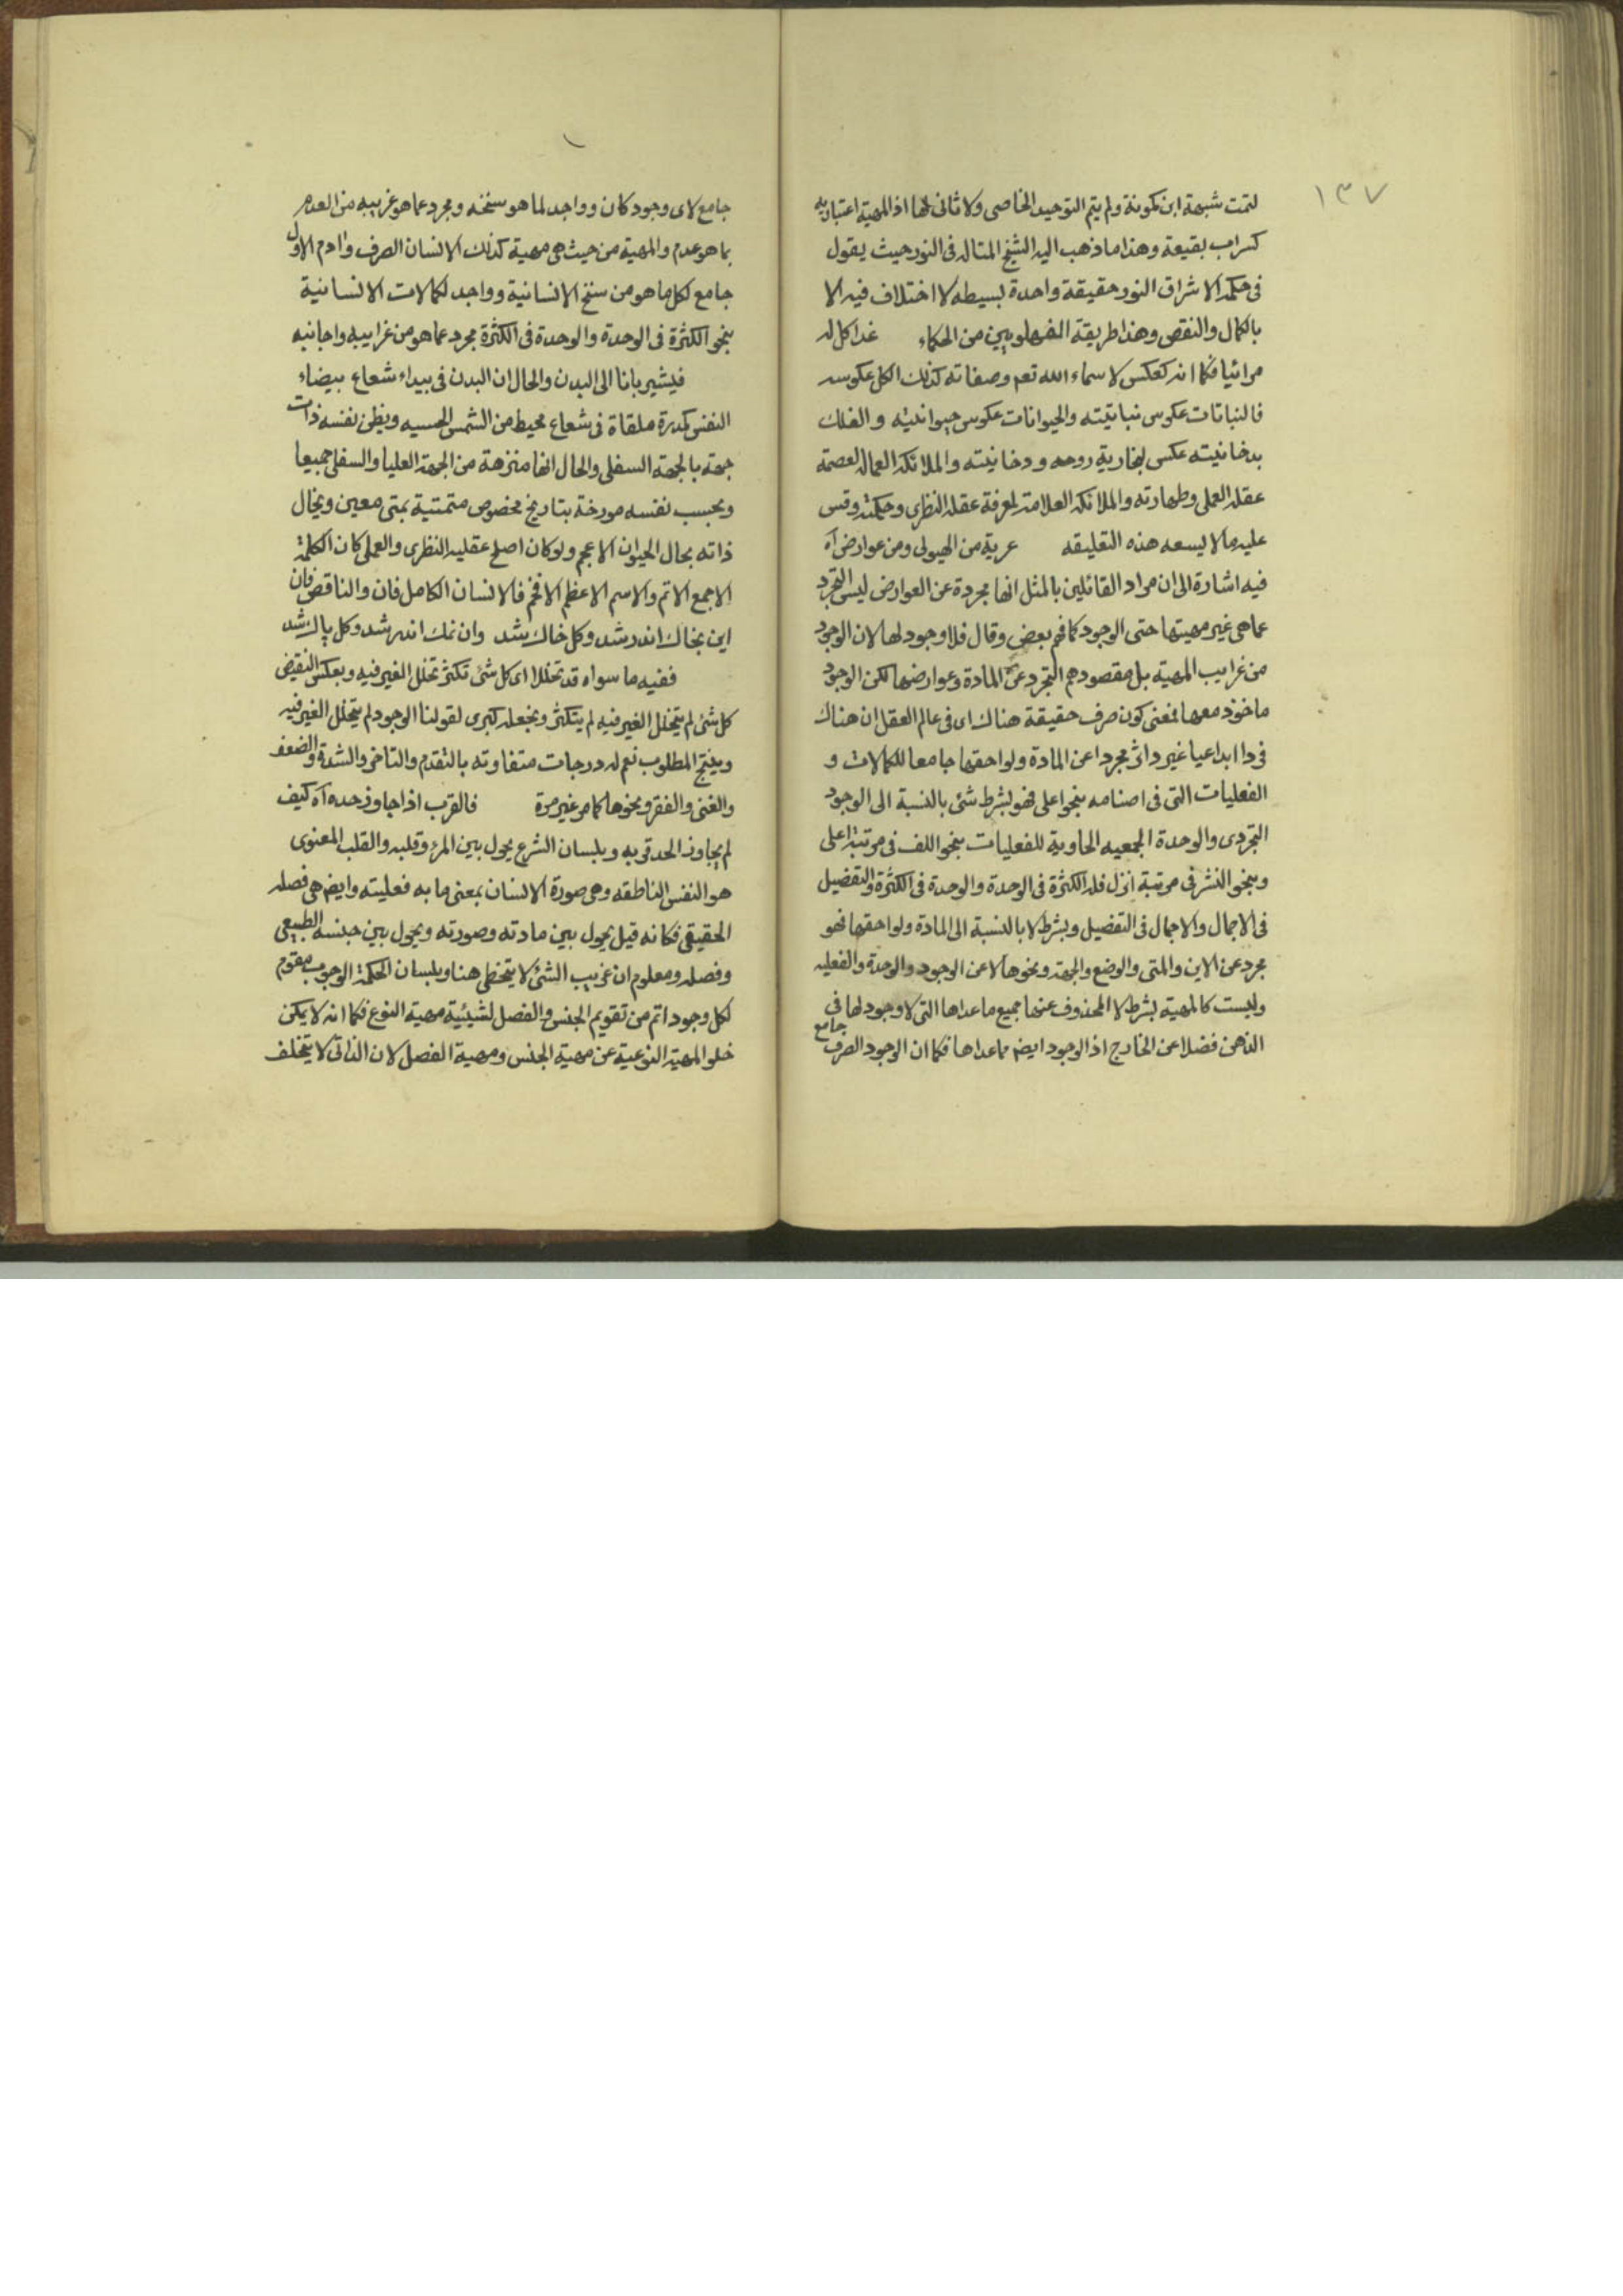 ١٣٧
لتمت شبهة ابن كمونة ولم يتم التوحيد الخاصى ولا ثانى لها اذ المهية اعتبارية
كسراب بقيعة وهذا ما ذهب اليه الشيخ المتاله فى النور حيث يقول
فى حكمة الاشراق النور حقيقة واحدة بسيطه لا اختلاف فيه الا
بالكمال والنقص وهذا طريقة الفهلويين من الحكماء غدا كل له
مرائيا فكما انه كعكس لاسماء الله تعم وصفاته كذلك الكل عكوسه
فالنباتات عكوس نباتيته والحيوانات عكوس حيوانيته والفلك
بدخانيته عكس بخارية روحه ودخانيته والملائكه العماله لعصمة
عقله العملى وطهارته والملائكه العلامة لمعرفة عقله النظرى وحكمته وقس
عليه ما لا يسعه هذه التعليقه عرية من الهيولى ومن عوارض آه
فيه اشارة الى ان مراد القائلين بالمثل انها مجردة عن العوارض ليس التجرد
عما هى غير مهيتها حتى الوجود كما فهم بعض وقال فلا وجود لها لان الوجود
من غرايب المهية بل مقصودهم التجرد عن المادة وعوارضها لكن الوجود
ماخوذ معها فمعنى كون صرف حقيقة هناك اى فى عالم العقل ان هناك
فردا ابداعيا غير داثر مجردا عن المادة ولواحقها جامعا للكمالات و
الفعليات التى فى اصنامه بنحو اعلى فهو بشرط شئ بالنسبة الى الوجود
التجردى والوحدة الجمعيه الحاوية للفعليات بنحو اللف فى مرتبة اعلى
وبنحو النشر فى مرتبة انزل فله الكثرة فى الوحدة والوحدة فى الكثرة والتفصيل
فى الاجمال والاجمال فى التفصيل وبشرط لا بالنسبة الى المادة ولواحقها فهو
مجرد عن الاين والمتى والوضع والجهة ونحوها لا عن الوجود والوحدة والفعليه
وليست كالمهية بشرط لا المحذوف عنها جميع ما عداها التى لا وجود لها فى
الذهن فضلا عن الخارج اذ الوجود ايضم مما عداها فكما ان الوجود الصرف جامع
جامع لاى وجود كان وواجد لما هو سنخه ومجرد عما هو غريبه من العدم
بما هو عدم والمهية من حيث هى مهية كذلك الانسان الصرف وادم الاول
جامع لكل ما هو من سنخ الانسانية وواجد لكمالات الانسانية
بنحو الكثرة فى الوحدة والوحدة فى الكثرة مجرد عما هو من غرايبه واجانبه
فيشير بانا الى البدن والحال ان البدن فى بيداء شعاع بيضاء
النفس كمدرة ملقاة فى شعاع محيط من الشمس الحسيه ويظن نفسه ذات
جهة بالجهة السفلى والحال انها منزهة من الجهة العليا والسفلى جميعا
ويحسب نفسه مورخة بتاريخ مخصوص متمتية بمتى معين ويخال
ذاته بحال الحيوان الاعجم ولو كان اصلح عقليه النظرى والعملى كان الكلمة
الاجمع الاتم والاسم الاعظم الافخم فالانسان الكامل فان والناقص فان
اين بخاك اندر شد وكل خاك شد وان نمك اندر شد وكل پاك شد
ففيه ما سواه قد تخللا اى كل شئ تكثر تخلل الغير فيه وبعكس النقيض
كل شئ لم يتخلل الغير فيه لم يتكثر ونجعله كبرى لقولنا الوجود لم يتخلل الغير فيه
وينتج المطلوب نعم له درجات متفاوته بالتقدم والتاخر والشدة والضعف
والغنى والفقر ونحوها كما مر غير مرة فالقرب اذا جاوز حده آه كيف
لم يجاوز الحد قربه وبلسان الشرع يحول بين المرء وقلبه والقلب المعنوى
هو النفس الناطقه وهى صورة الانسان بمعنى ما به فعليته وايضم هى فصله
الحقيقى فكانه قيل يحول بين مادته وصورته ويحول بين جنسه الطبيعى
وفصله ومعلوم ان غريب الشئ لا يتخطى هنا وبلسان الحكمة الوجوب مقوم
لكل وجود اتم من تقويم الجنس والفصل لشيئية مهية النوع فكما انه لا يمكن
خلو المهية النوعية عن مهية الجنس ومهية الفصل لان الذاتى لا يتخلف